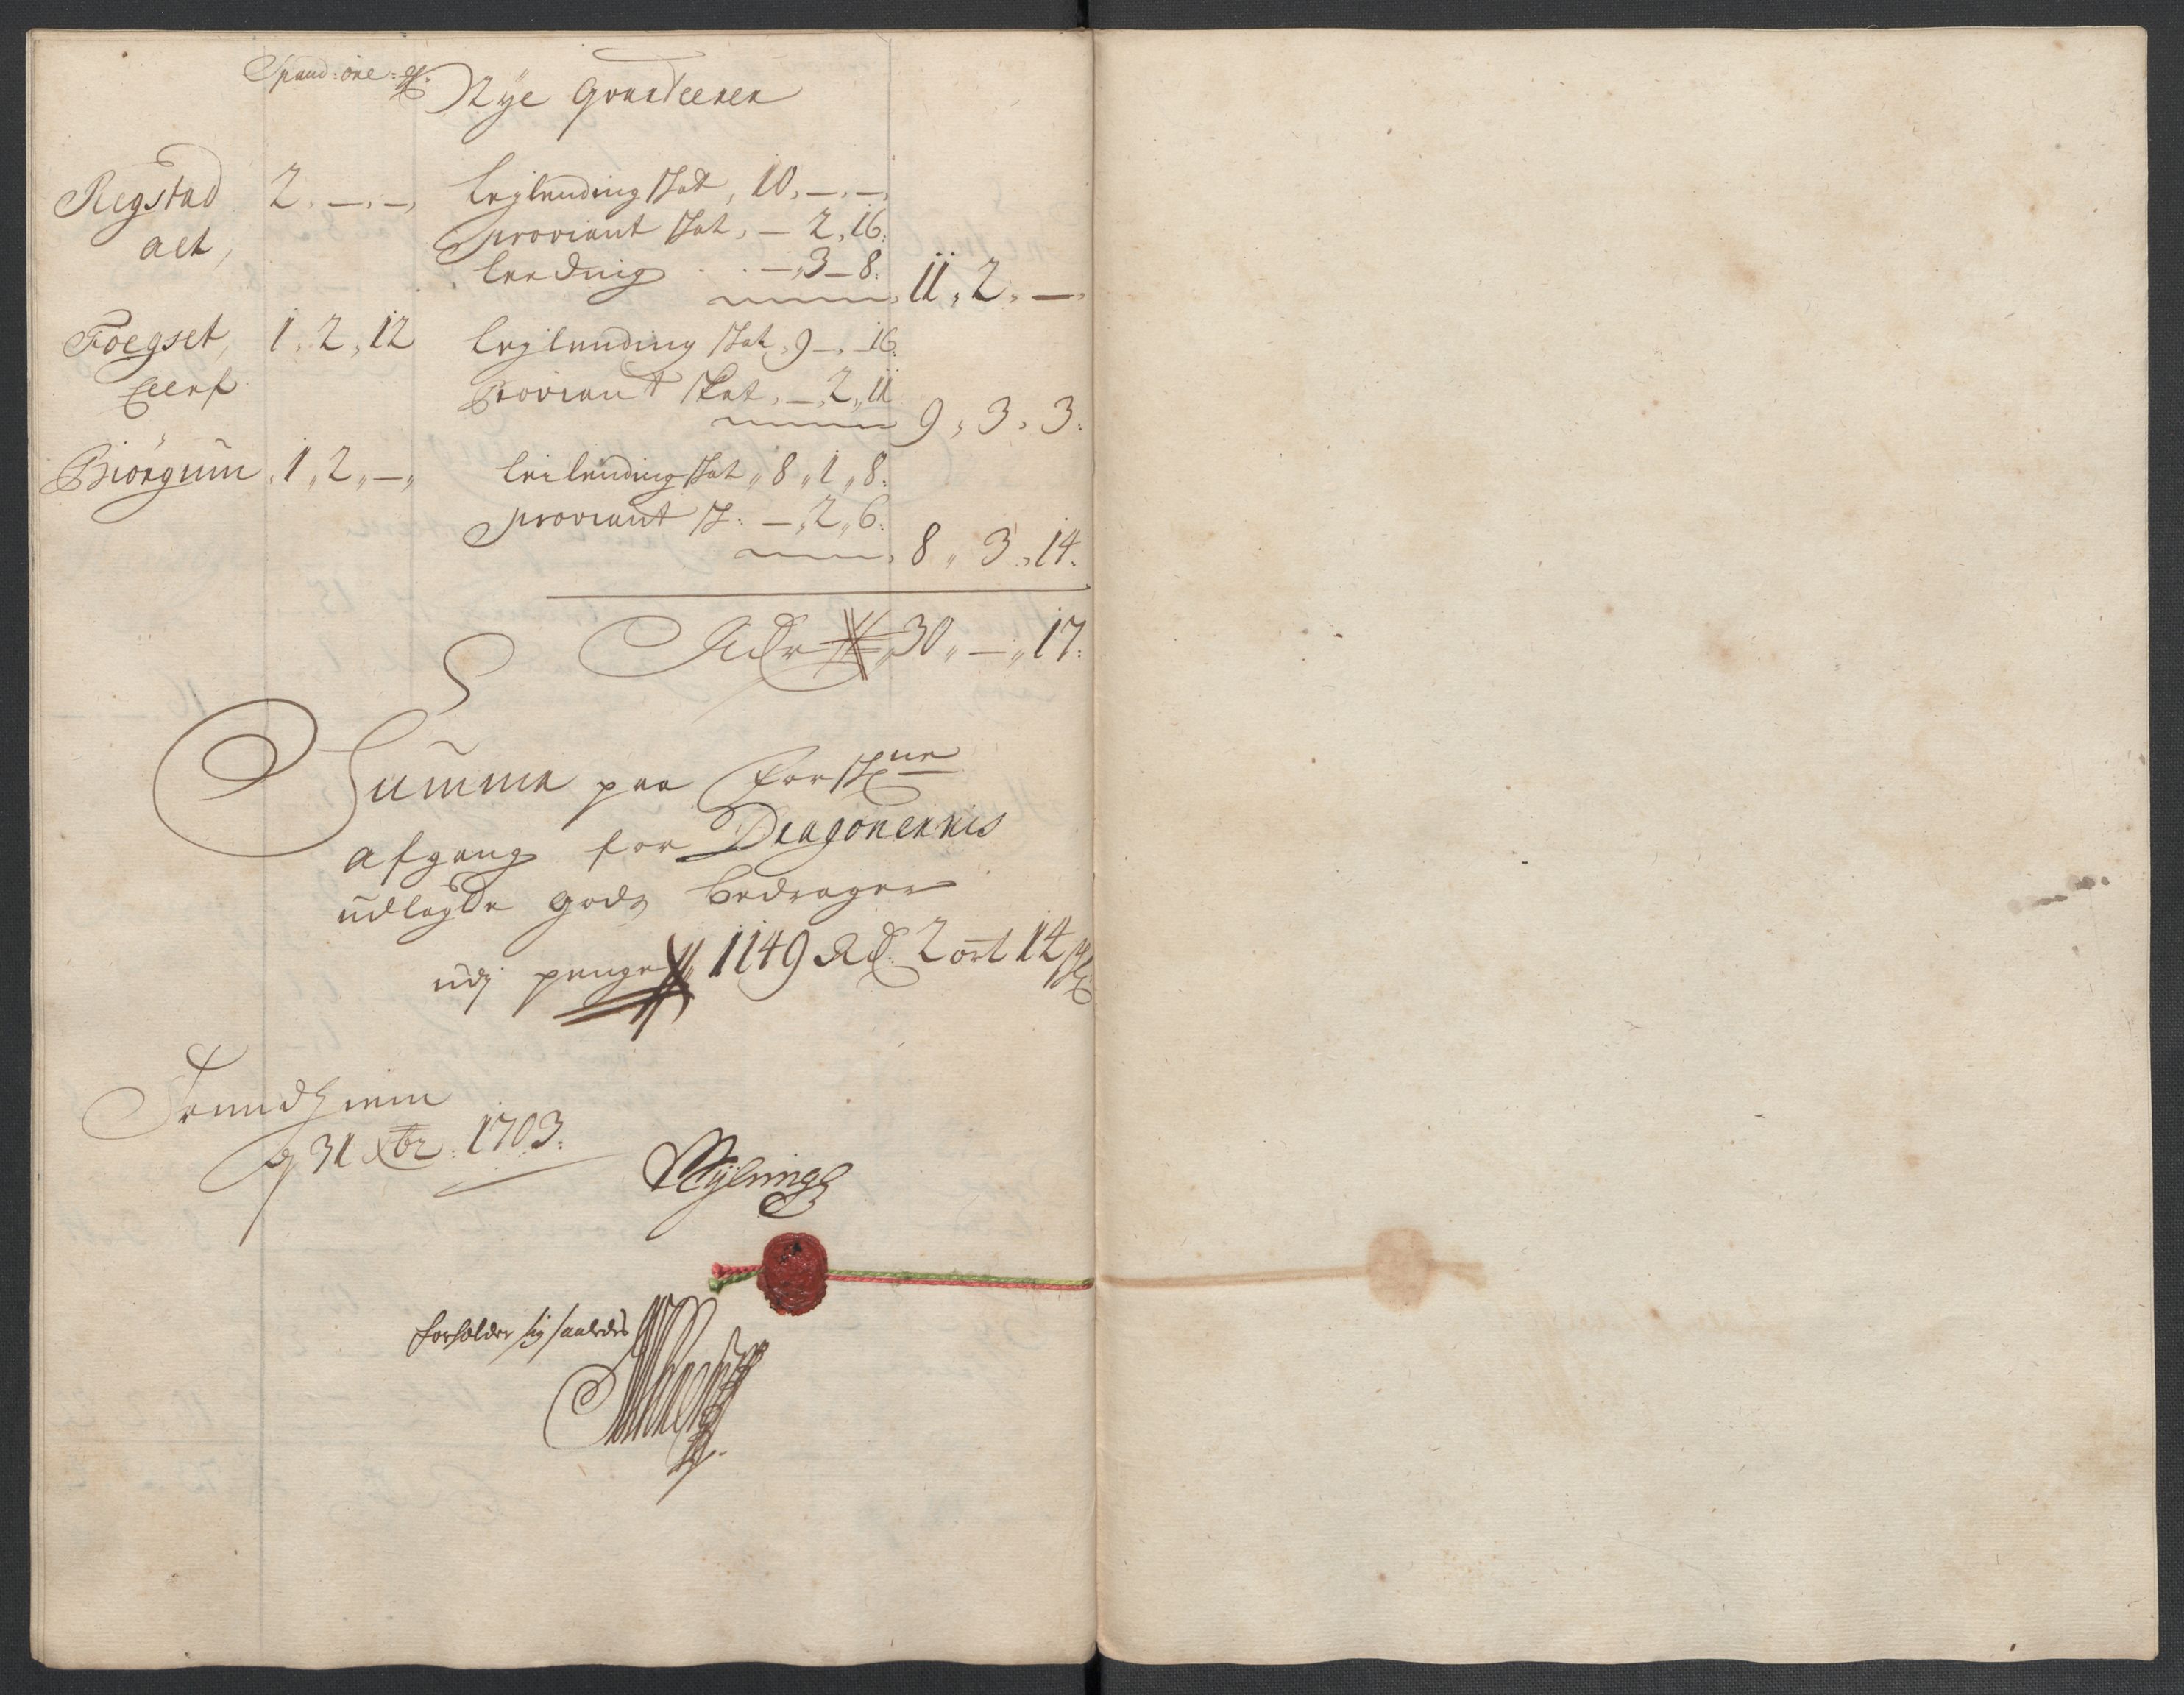 Spand: øre: 
Nye Qvarteerer
Regstad 2 . — . — , Leylending skat , 10 , — . — ,
alt , proviant skat , — 2 , 16 :
Leeding . . — , 3 — 8 :
11 , 2 , — ,
Foegset , 1 , 2 , 12 Leylending skat , 9 — , 16 :
Proviant skat , — , 2 , 11
9 , 3 , 3 :
Biörgum . 1 , 2 , — , Leilendingskat , 8 , 1 , 8 :
proviant sk : — , 2 , 6 :
8 , 3 , 14 :
30 , — , 17 :
Summa paa forskne
afgang for Dragonernis
udlagde gods bedrager
udj penge 1149 Rd: 2 ort 14 sk
Trundhiem
d 31 Xbr : 1703 :
forholder sig saaledes